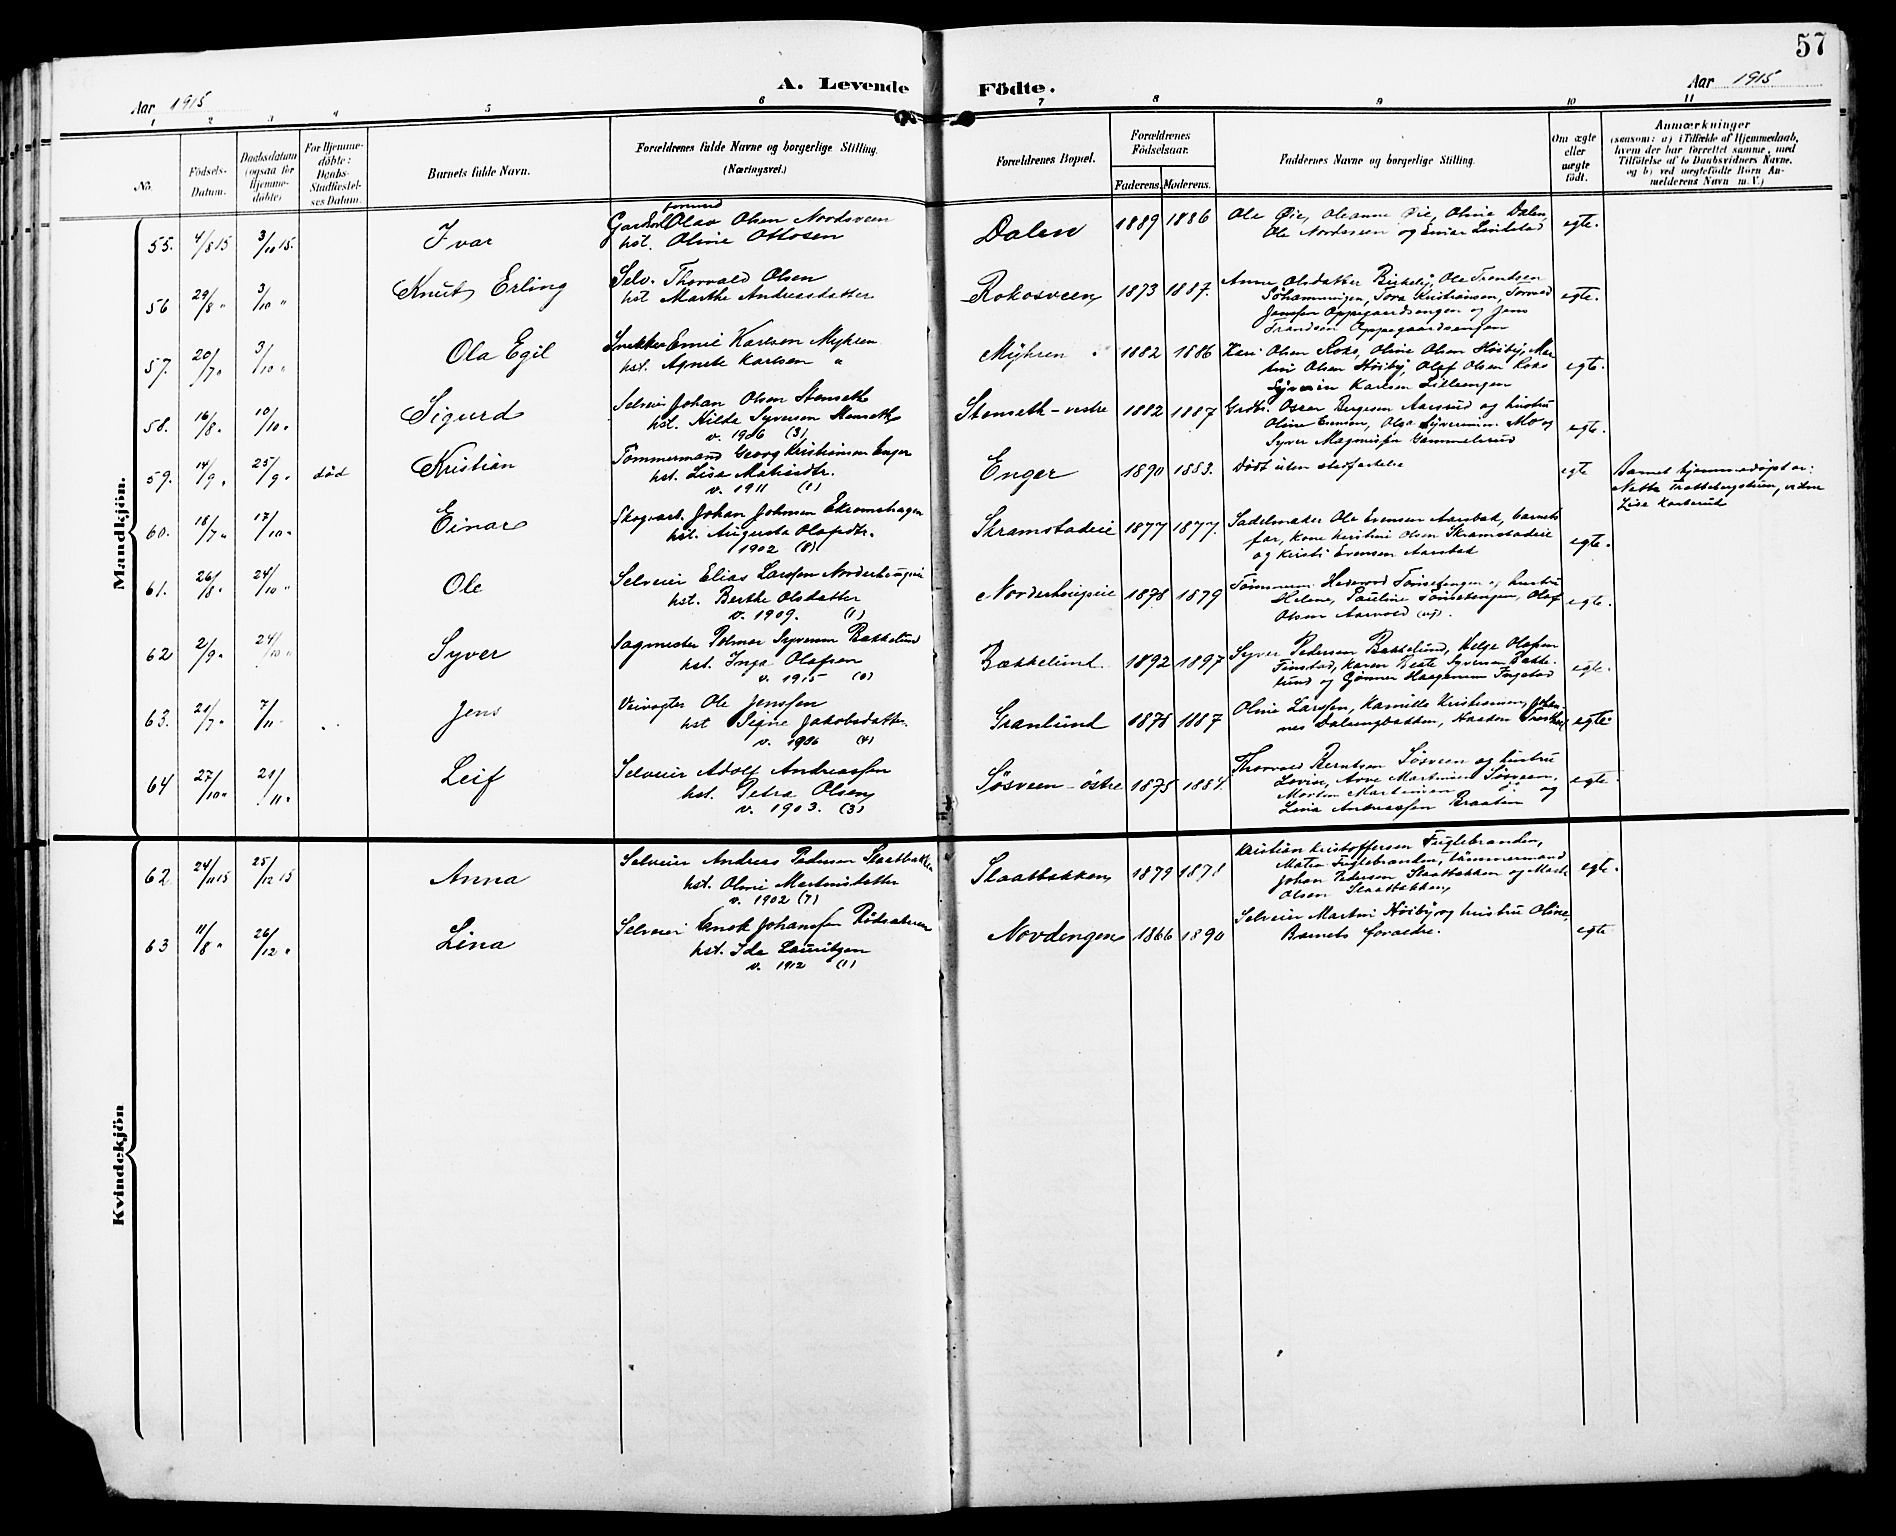 57
Aar 1915
A. Levende Födte.
Aar 1915
1 2 3 4 5 6 7 8 9 10 11
No.
Födsels-
Datum.
Daabsdatum
(ogsaa for
Hjemme-
döbte)
For Hjemme-
döbte:
Daabs-
Stadfæstel-
ses Datum.
Barnets fulde Navn.
Forældrenes fulde Navne og borgerlige Stilling.
(Næringsvei.)
Forældrenes Bopæl.
Forældrenes
Födselsaar.
Faderens. Moderens.
Faddernes Navne og borgerlige Stilling.
Om ægte
eller
uægte
födt.
Anmærkninger
(saasom: a) i Tilfælde af Hjemmedaab,
hvem der har forrettet samme, med
Tilföielse af to Daabsvidners Navne,
og b) ved uegtefödte Börn An-
melderens Navn m. V.)
Mandkjön.
55. 4/8 15 3/10 15. Ivar
Olav Olsen Nordsveen
hst. Oline Ottosen
Dalen 1889 1886
Ole Øie, Oleanne Øie, Oline Dalen,
Ole Nordsveen og Einar
egte.
56 29/8 " 3/10 " Knut Erling
Selv. Thorvald Olsen
hst Marthe Andreasdatter
Rokosveen 1873 1887.
Anne Olsdatter Birkely, Ole Frantsen
Tora Kristiansen,
Jensen Oppegaardsengen og Jens
Frandsen Oppegaardsengen
egte.
57. 20/7 " 3/10 " Ola Egil
Snekker Emil Karlsen Myhren
hst. Agnete Karlsen "
Myhren 1882 1886
Kari Olsen Roko, Oline Olsen Høiby, Mar-
tin Olsen Høiby, Olaf Olsen Roko
Syverin Karlsen Lilleengen
egte.
58. 16/8 " 10/10 " Sigurd
Selveier Johan Olsen Stenseth
hst. Hilda Syversen Stenseth
v. 1906 (3)
Stenseth-vestre 1882 1887
Grdbr. Oscar Bergesen Aarsrud og hustru
Oline Evensen, Olga Syversen Mo og
Syver Magnussen Gammelsrud
egte.
59. 14/9 " 25/9 " död Kristian
Tømmermand Georg Kristiansen Enger
hst. Lisa Matisdtr.
v. 1911 (1)
Enger 1890 1883.
Dödt uten stadfæstelse
egte
Barnet hjemmedøpt av:
Lisa
60. 18/7 " 17/10 " Einar
Skogsarb. Johan Johnsen
hst. Augusta Olafsdtr.
1902 (8)
Skramstadeie 1877 1877.
Sadelmaker Ole Evensen Aarstad, barnets
far, kone Kristine Olsen Skramstadeie
og Kristi Evensen Aarstad
egte.
61. 26/8 " 24/10 " Ole
Selveier Elias Larssen Norderhaugeie
hst. Berthe Olsdatter
v. 1909. (1)
Norderhaugeie 1878 1879
og hustru
Helene, Pauline Olaf
Olsen Aarvold
egte.
62 2/9 " 24/10 " Syver
Sagmester Peder Syversen Bækkelund
hst. Inga Olafsen
v. 1915 (0)
Bækkelund 1892 1897
Syver Pedersen Bækkelund, Helge Olafsen
Finstad, Karen Beate Syversen Bække-
lund og Gunner Haagensen
egte.
63. 21/7 " 7/11 " Jens
Veivogter Ole Jenssen
hst Signe Jakobsdatter.
v. 1906 (4)
Granlund 1878 1887
Oline Larssen, Kamilla Kristiansen, Johan-
nes Dalsengbakken, Haakon
egte.
64 27/10 " 21/11 " Leif
Selveier Adolf Andreassen
hst. Petra Olsen
v. 1903. (3)
Søsveen-østre 1875 1884.
Thorvald Berntsen Søsveen og hustru
Lovise, Arne Martinsen Søsveen,
Morten Martinsen og
Lina Andreassen Braaten
egte.
Kvindekjön
62 24/11 15 25/12 15 Anna
Selveier Andreas Pedersen Slaatbakken
hst. Oline Martinsdatter
v. 1902 (7)
Slaatbakken 1879 1878
Kristian Kristoffersen Fuglebranden,
Matea Fuglebranden, tømmermand
Johan Pedersen Slaatbakken og Marte
Olsen Slaatbakken
egte.
63 11/8 " 26/12 " Lina
Selveier Enok Johanssen
hst. Ida Lauritzen
v. 1912 (1)
Nordengen 1866 1890
Selveier Martin Høiby og hustru Oline
Barnets foraeldre.
egte.